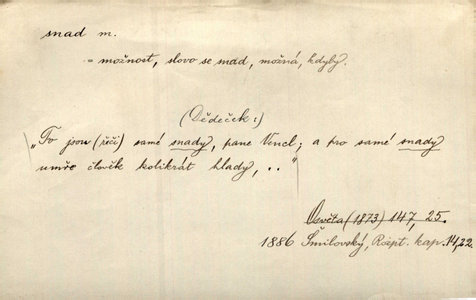 snad m.
= možnost, slovo se snad, možná, kdyby.
(Dědeček:)
„To jsou (řeči) samé snady, pane Vencl; a pro samé snady
umře člověk kolikrát hlady, . . "
Osvěta (1873) 147, 25.
1886 Šmilovský, Rozpt. kap. 14,22